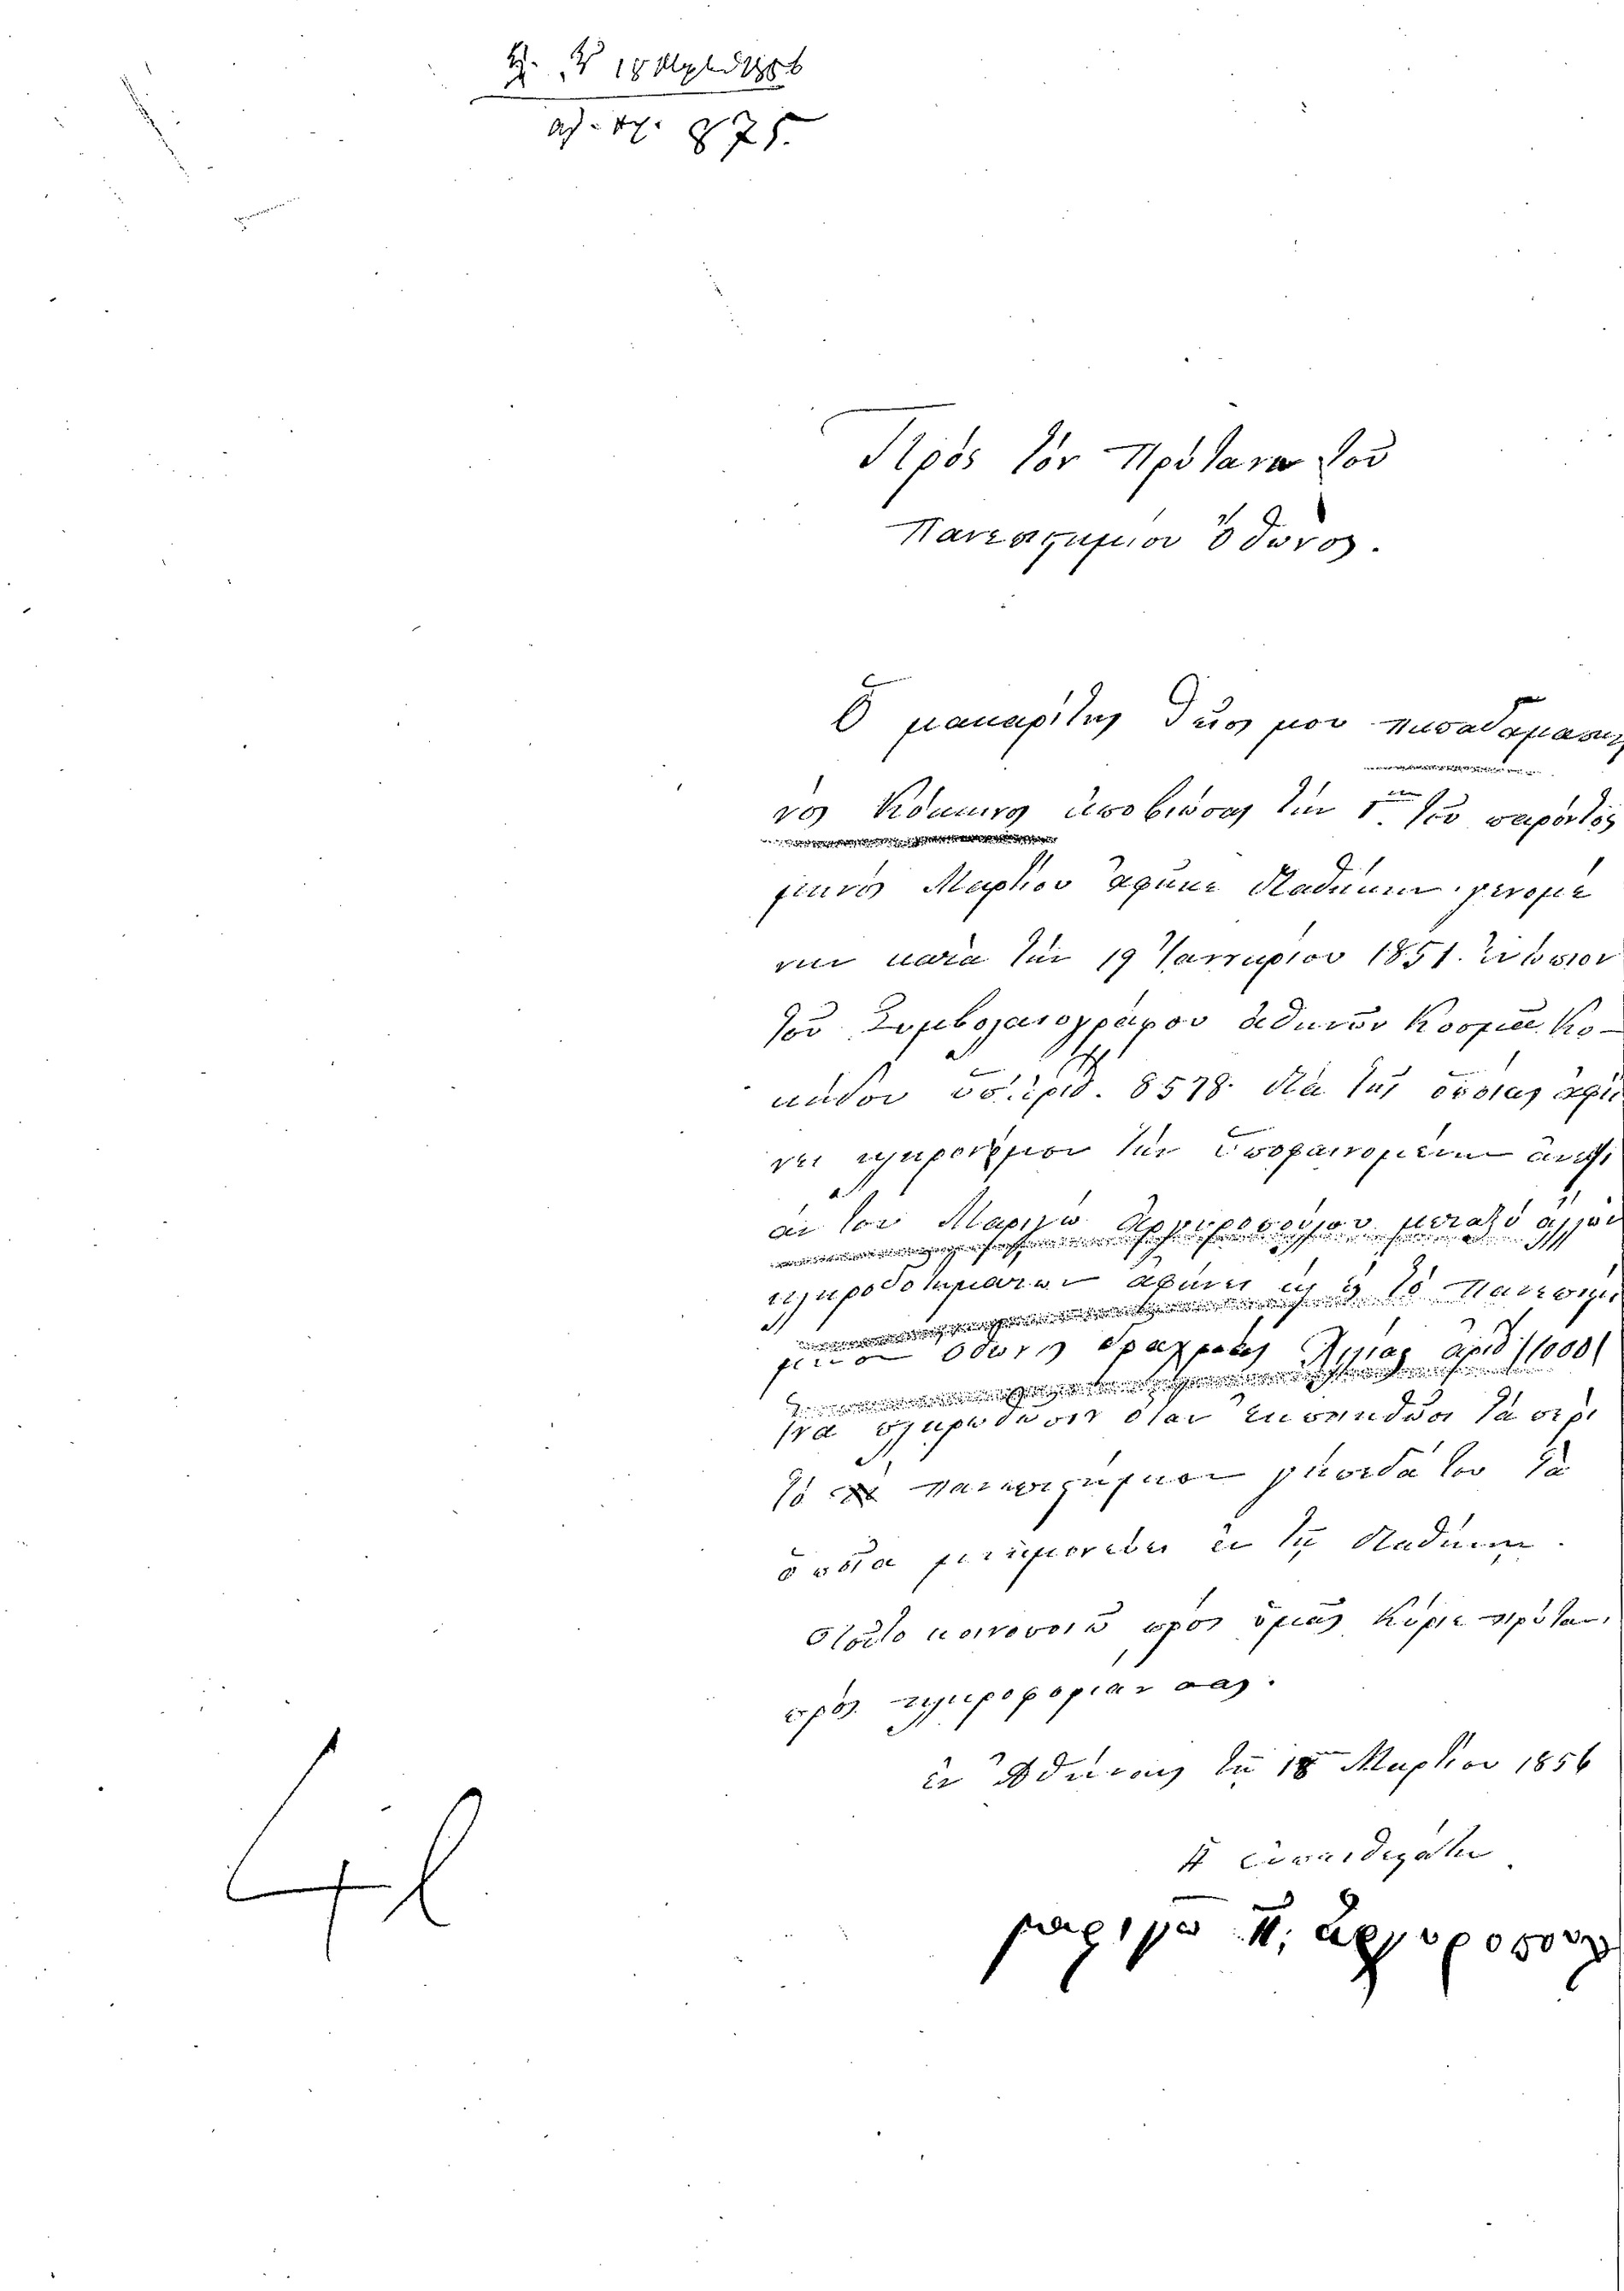 18 1856
875.
Πρὸς τὸν Πρύτανιν τοῦ
Πανεπιστημίου Ὄθωνος.
Ὁ μακαρίτης θεῖος μου
Κόκκινος ἀποβιώσας τὴν τοῦ παρόντος
μηνὸς Μαρτίου ἀφῆκε διαθήκην γενομέ
νην κατὰ τὴν 19 Ἰαννουρίου 1851. ἐνώπιον
τοῦ Συμβολαιογράφου ἀθηνῶν Κοσμᾶ Κο-
κκίδου ὑπ. ἀριθ. 8578. διὰ τῆς ὁποίας ἀφί
νει κληρονόμον τὴν ὑποφαινομένην
Μαριγὼ Ἀργυροπούλου μεταξὺ ἄλλων
κληροδοτημάτων ἀφίνει καὶ εἰς τὸ Πανεπιστη
μιον Ὄθωνος δραχμὰς ἀριθ. (1000)
ἵνα πληρωθῶσιν ὅταν
τὸ Πανεπιστήμιον τὰ
ὁποῖα μνημονεύει ἐν τῇ διαθήκῃ.
Ὅ τοῦτο κοινοποιῶ πρὸς ὑμᾶς Κύριε πρύταν.
πρὸς πληροφορίαν σας.
ἐν Ἀθήναις τῇ 18 Μαρτίου 1856
Ἡ εὐπειθεστάτη
μαριγο Κ. αργυροπουλου